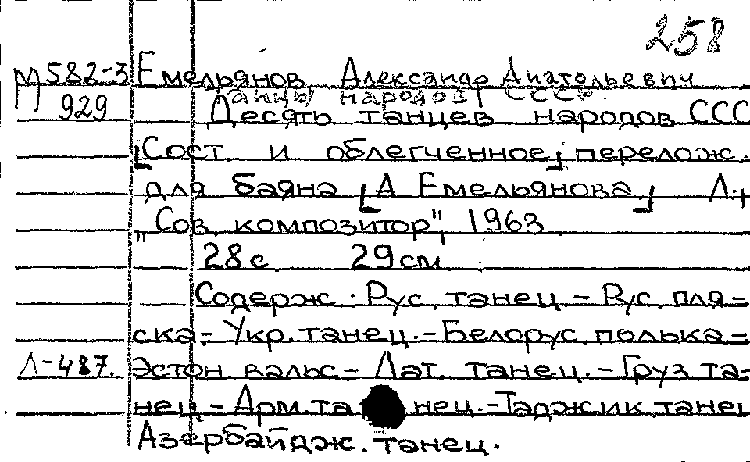 258
М582-3 Емельянов Александр Анатольевич
танцы народов СССР
929 Десять танцев народов ССС
[Сост. и облегченное] перелож.
для баяна [А. Емельянова] Л.,
"Сов. композитор", 1963.
28с. 29см.
Содерж.: Рус. танец. - Рус. пля-
ска. - Укр. танец. - Белорус. полька. -
Л-487. Эстон. вальс. - Лат. танец. - Груз. та-
нец. - Арм. танец. - Таджик. танец
Азербайдж. танец.